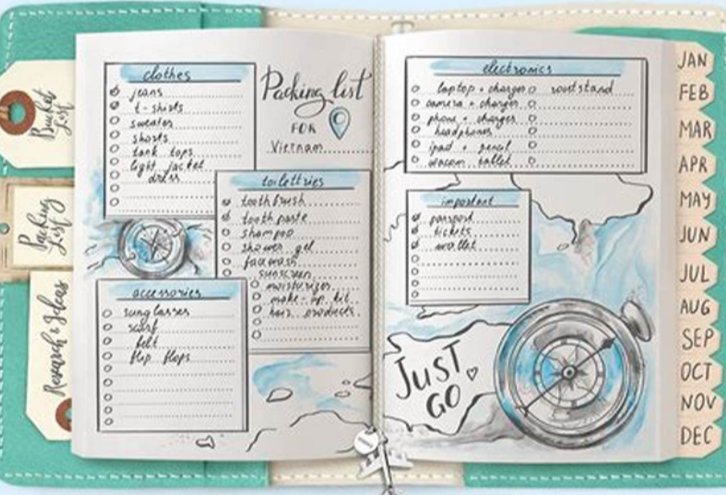 Bucket
List
Packing
List
Research & Ideas
clothes
jeans
t-shirts
sweater
shorts
tank tops
light jacket
dress
Packing list
FOR
Vietnam
toilettries
toothbrush
tooth paste
shampoo
shower gel
facewash
sunscreen
moisturizer
make-up kit
hair products
accessories
sunglasses
scarf
belt
flip flops
electronics
laptop + charger
camera + charger
phone + charger
headphones
ipad + pencil
wacom tablet
important
passport
tickets
wallet
JUST
GO
JAN
FEB
MAR
APR
MAY
JUN
JUL
AUG
SEP
OCT
NOV
DEC